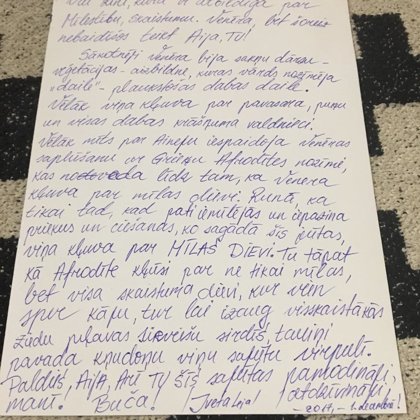 kura ir atbildīga par
Mīlestību, skaistumu. Venēra, bet šoreiz
nebaidīšos teikt Aija, Tu!
Sākotnēji Venēra bija sakņu dārzu-
veģetācijas- aizbildne, kuras vārds nozīmēja
"daile" - plaukstošās dabas daile.
Vēlāk viņa kļuva par pavasara, puķu
un visas dabas krāšņuma valdnieci.
Vēlāk mīts par Aineju iespaidoja Venēras
saplūšanu ar Grieķu Afrodītes nozīmē,
kas noveda līdz tam, ka Venēra
kļuva par mīlas dievi. Runā, ka
tikai tad, kad pati iemīlējās un izbaudīja
priekus un ciešanas, ko sagādā šīs jūtas,
viņa kļuva par MĪLAS DIEVI. Tu tāpat
kā Afrodīte kļūsi par ne tikai mīlas,
bet visa skaistuma dievi, kur vien
spersi kāju, tur lai izaug visskaistākās
ziedu pļavas sieviešu sirdīs, tauriņi
pavada kņudoņu viņu sajūtu virpulī.
Paldies, AijA, Arī TU šīs sajūtas pamodināji,
manī! Buča! atdzīvināji!
2017. - 1. decembrī!